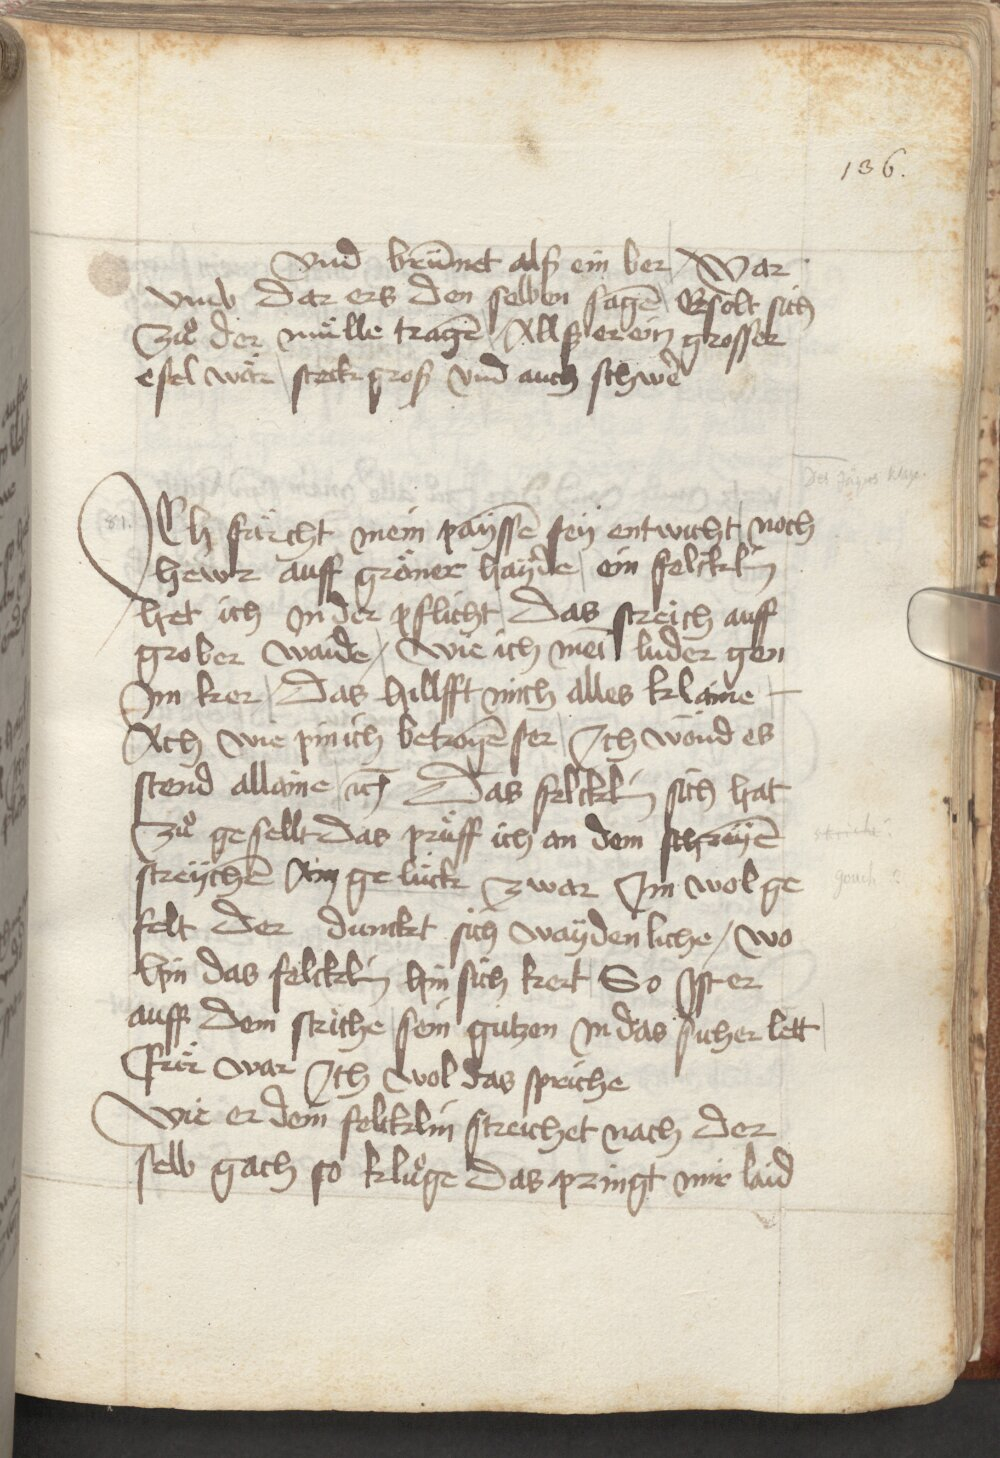 136.
vnd brūnet alß ein ber / War
vmb dar ers den selben sagē Er solt sich
Zuͦ der muͤlle tragē / Allß er ein grosser
esel wär / starkgroß vnd auch schwē
Des Jägers klage.
81.
ICh fürcht mein payssē sey entwicht / noch
hewr auff gröner hayde / ein felcklin
het ich In der pflicht / Das streich auff
grober waide / Wie ich mei luder gen
Im ker / Das hillfft mich alles klaine
Ach wie pin ich betrogē ser / Ich wönd es
stend allaine / ich Das felcklin sich hat
Zuͦ gesellt das prüff ich an dem schreyē
streychē Ain gelück zwar Im wol ge
gouch ?
felt Der dunckt sich waydenliche / wo
hin das felcklin hin sich kert / So Ist er
auff dem striche / sein gutzen In das sicher lett
Für war Ich wol das spriche
Wie er dem felcklin streichet nach der
selb gach so kluͦge Das pringt mir laid